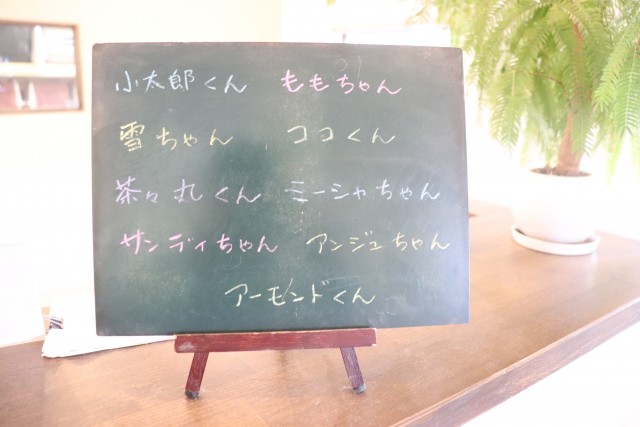 小太郎くん ももちゃん
雪ちゃん ココくん
茶々丸くん ミーシャちゃん
サンディちゃん アンジュちゃん
アーモンドくん